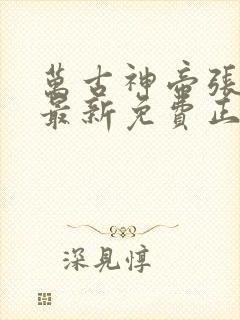 萬古神帝張
最新免費正
深見惇